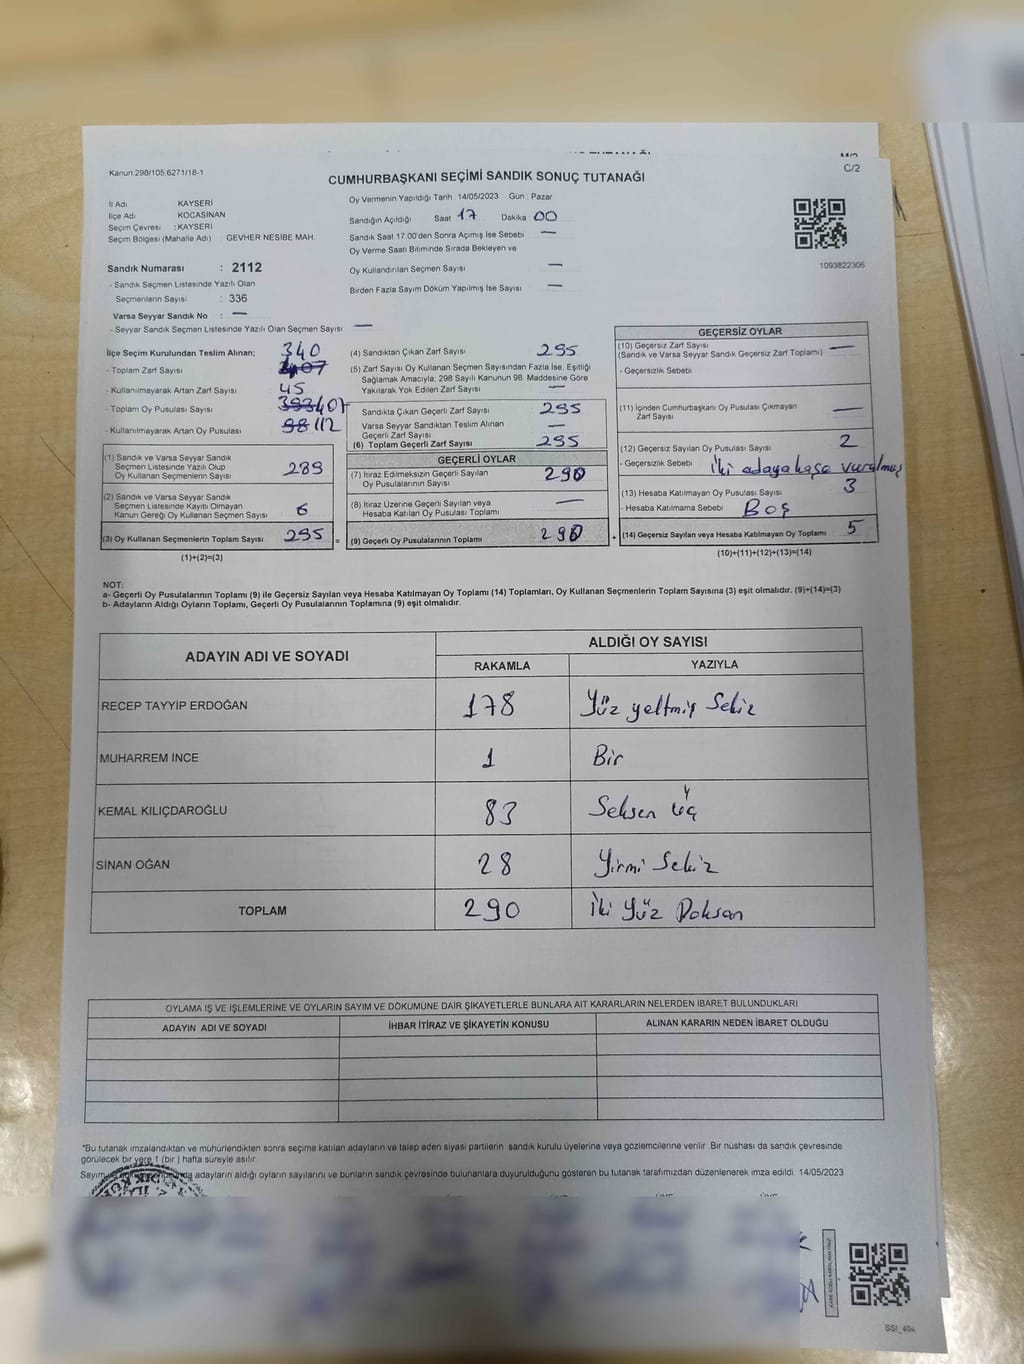 Kanun 298/105,6271/18-1
C/2
CUMHURBAŞKANI SEÇİMİ SANDIK SONUÇ TUTANAĞI
İl Adı KAYSERİ
İlçe Adı KOCASİNAN
Seçim Çevresi : KAYSERİ
Seçim Bölgesi (Mahalle Adı) : GEVHER NESİBE MAH.
Oy Vermenin Yapıldığı Tarih 14/05/2023 Gün : Pazar
Sandığın Açıldığı Saat 17 Dakika 00
Sandık Saat 17.00'den Sonra Açılmış İse Sebebi —
Oy Verme Saati Bitiminde Sırada Bekleyen ve
Oy Kullandırılan Seçmen Sayısı —
Birden Fazla Sayım Döküm Yapılmış İse Sayısı —
1093822306
Sandık Numarası : 2112
- Sandık Seçmen Listesinde Yazılı Olan
Seçmenlerin Sayısı : 336
Varsa Seyyar Sandık No : —
- Seyyar Sandık Seçmen Listesinde Yazılı Olan Seçmen Sayısı : —
İlçe Seçim Kurulundan Teslim Alınan;
- Toplam Zarf Sayısı 340
- Kullanılmayarak Artan Zarf Sayısı 45
- Toplam Oy Pusulası Sayısı 407
- Kullanılmayarak Artan Oy Pusulası 112
(1) Sandık ve Varsa Seyyar Sandık
Seçmen Listesinde Yazılı Olup
Oy Kullanan Seçmenlerin Sayısı 289
(2) Sandık ve Varsa Seyyar Sandık
Seçmen Listesinde Kayıtlı Olmayan
Kanun Gereği Oy Kullanan Seçmen Sayısı 6
(3) Oy Kullanan Seçmenlerin Toplam Sayısı 295
(1)+(2)=(3)
(4) Sandıktan Çıkan Zarf Sayısı 295
(5) Zarf Sayısı Oy Kullanan Seçmen Sayısından Fazla İse, Eşitliği
Sağlamak Amacıyla, 298 Sayılı Kanunun 98. Maddesine Göre
Yakılarak Yok Edilen Zarf Sayısı —
Sandıkta Çıkan Geçerli Zarf Sayısı 295
Varsa Seyyar Sandıktan Teslim Alınan
Geçerli Zarf Sayısı —
(6) Toplam Geçerli Zarf Sayısı 295
GEÇERLİ OYLAR
(7) İtiraz Edilmeksizin Geçerli Sayılan
Oy Pusulalarının Sayısı 290
(8) İtiraz Üzerine Geçerli Sayılan veya
Hesaba Katılan Oy Pusulası Toplamı —
= (9) Geçerli Oy Pusulalarının Toplamı 290
GEÇERSİZ OYLAR
(10) Geçersiz Zarf Sayısı —
(Sandık ve Varsa Seyyar Sandık Geçersiz Zarf Toplamı)
- Geçersizlik Sebebi
(11) İçinden Cumhurbaşkanı Oy Pusulası Çıkmayan
Zarf Sayısı —
(12) Geçersiz Sayılan Oy Pusulası Sayısı 2
- Geçersizlik Sebebi İki adaya kaşe vurulmuş
(13) Hesaba Katılmayan Oy Pusulası Sayısı 3
- Hesaba Katılmama Sebebi Boş
+ (14) Geçersiz Sayılan veya Hesaba Katılmayan Oy Toplamı 5
(10)+(11)+(12)+(13)=(14)
NOT:
a- Geçerli Oy Pusulalarının Toplamı (9) ile Geçersiz Sayılan veya Hesaba Katılmayan Oy Toplamı (14) Toplamları, Oy Kullanan Seçmenlerin Toplam Sayısına (3) eşit olmalıdır. (9)+(14)=(3)
b- Adayların Aldığı Oyların Toplamı, Geçerli Oy Pusulalarının Toplamına (9) eşit olmalıdır.
ADAYIN ADI VE SOYADI
ALDIĞI OY SAYISI
RAKAMLA YAZIYLA
RECEP TAYYİP ERDOĞAN 178 Yüz yeltmiş Sekiz
MUHARREM İNCE 1 Bir
KEMAL KILIÇDAROĞLU 83 Seksen Üç
SİNAN OĞAN 28 Yirmi Sekiz
TOPLAM 290 İki Yüz Doksan
OYLAMA İŞ VE İŞLEMLERİNE VE OYLARIN SAYIM VE DÖKÜMÜNE DAİR ŞİKAYETLERLE BUNLARA AİT KARARLARIN NELERDEN İBARET BULUNDUKLARI
ADAYIN ADI VE SOYADI İHBAR İTİRAZ VE ŞİKAYETİN KONUSU ALINAN KARARIN NEDEN İBARET OLDUĞU
*Bu tutanak imzalandıktan ve mühürlendikten sonra seçime katılan adayların ve talep eden siyasi partilerin sandık kurulu üyelerine veya gözlemcilerine verilir. Bir nüshası da sandık çevresinde
görülecek bir yere 1 (bir ) hafta süreyle asılır.
adayların aldığı oyların sayılarını ve bunların sandık çevresinde bulunanlara duyurulduğunu gösteren bu tutanak tarafımızdan düzenlenerek imza edildi. 14/05/2023
SSİ_404